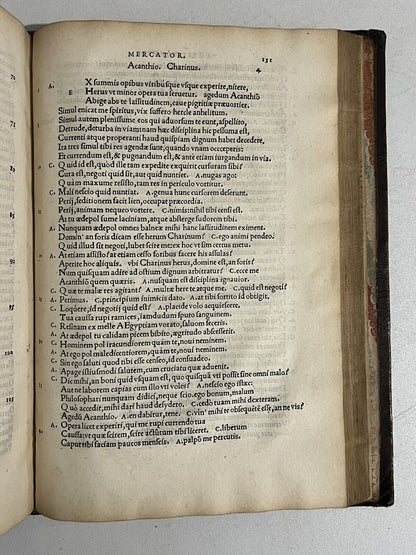 MERCATOR.
131
Acanthio. Charinus.
4
A. EX summis opibus viribúsque vsque experire, nitere,
Herus vt minor opera tua seruetur. agedum Acanthiõ
Abige abs te lassitudinem, caue pigritiæ præuortier.
Simul enicat me spiritus, vix suffero hercle anhelitum.
Simul autem plenissume eos qui aduorsum te eunt, aspellito,
Detrude, deturba in viam. hæc disciplina hic pessuma est,
Currenti atque properanti haud quisquam dignum habet decedere,
Ita tres simul tibi res agendæ sunt, quando vnam occeperis
Et currendum est, & pugnandum est, & ante etiam iurgandum in via.
C. Quid id est, quòd ille tam expedite exquirit cursuram sibi?
Cura est, negoti quid sit, aut quid nuntiet. A. nugas ago:
Quàm maxume resisto, tam res in periculo vortitur.
C. Mali nescio quid nuntiat. A. genua hunc cursorem deserunt.
Perij, seditionem facit lien, occupat præcordia.
Perij, animam nequeo vortere. C. nimis nihil tibi censi est.
At tu ædepol sume laciniam, atque absterge sudorem tibi.
A. Nunquam ædepol omnes balneæ mihi hanc lassitudinem eximent.
Domin' an foris dicam esse herum Charinum? C. ego animi pendeo.
Quid illud sit negoti, lubet scire me ex hoc vt sim certus metu.
A. At etiam assisto? at etiam cesso foribus facere his assulas?
Aperite hoc aliquis. vbi Charinus herus, domine est, an foris?
Num quisquam adire ad ostium dignum arbitratur? C. ecce me
Acanthio quem quæris. A. nusquam est disciplina ignauior.
C. Quæ te malæ res agitant? A. multæ here te atque me. C. quid est negoti?
A. Perimus. C. principium inimicis dato. A. at tibi sortito id obtigit.
C. Loquere, id negoti quid est? A. placide volo acquiescere.
Tua caussa rupi ramices, iamdudum sputo sanguinem.
C. Resinam ex melle Aegyptiam vorato, saluum feceris.
A. At ædepol tu calidam picem bibito, ægritudo abscesserit.
C. Hominem ego iracundiorem quàm te, noui neminem.
A. At ego pol maledicentiorem, quàm te, noui neminem.
C. Sin ego saluti quod tibi esse censeo, id consuadeo.
A. Apage istiusmodi salutem, cum cruciatu quæ aduenit.
C. Dic mihi, an boni quid vsquam est, quo quisquã vti possit sine malo omni?
Aut ne laborem capias cum illo vti voles? A. nescio ego istæc:
Philosophari nunquam didici, néque scio. ego bonum, malum
Quò accedit, mihi dari haud desydero. C. cedò tuam mihi dexteram.
Agedũ Acanthio. A. en dabitur, tene. C. vin' mihi te obsequẽtẽ esse, an ne vis?
A. Opera licet experiri, qui me rupi currendo tua
Caussa: vt quæ scirem, scire actûtum tibi liceret. C. liberum
Caput tibi faciam paucos mensesis. A. palpõ me percutis.